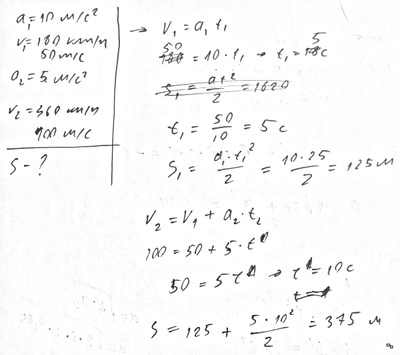 a₁=10 м/с²
v₁=180 км/ч
50 м/с
a₂=5 м/с²
v₂=360 км/ч
100 м/с
S-?
→ V₁=a₁t₁
50=10·t₁ → t₁=5c
S₁=at²/2=1620
t₁=50/10=5c
S₁=a₁·t₁²/2=10·25/2=125м
V₂=V₁+a₂·t₂
100=50+5·t
50=5t → t=10c
S=125+5·10²/2=375 м